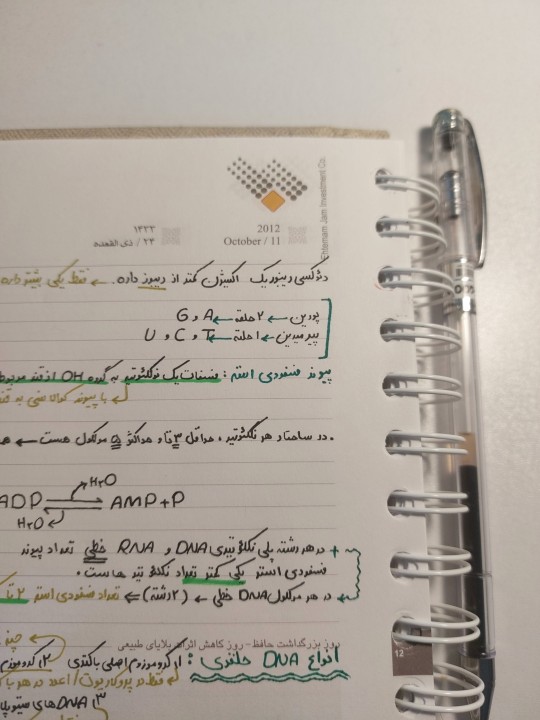 Ehtemam Jam Investment Co.
2012
October / 11
۱۴۳۳
۲۴ / ذی القعده
دئوکسی ریبوز یک اکسیژن کمتر از ریبوز داره. ← فقط یکی بیشتر داره
پورین ← ۲ حلقه ← A و G
پیریمیدین ← ۱ حلقه ← T و C و U
پیوند فسفودی استر : فسفات یک نوکلئوتید به گروه OH از قند مربوط
با پیوند کووالانسی به قند
. در ساختار هر نوکلئوتید ، حداقل ۳ تا و حداکثر ۵ مولکول هست ←
H₂O
ADP AMP+P
H₂O
+ در هر رشته پلی نوکلئوتیدی DNA و RNA خطی تعداد پیوند
فسفودی استر یکی کمتر تعداد نوکلئوتید هاست .
در هر مولکول DNA خطی ← (۲ رشته) ← تعداد فسفودی استر ۲ تا ک
روز بزرگداشت حافظ - روز کاهش اثرات بلایای طبیعی
12
انواع DNA حلقوی : ۱) کروموزوم اصلی باکتری ۲) کروموزوم
فقط در پروکاریوت / اعدد در هر با
۳) DNA های سیتوپلا